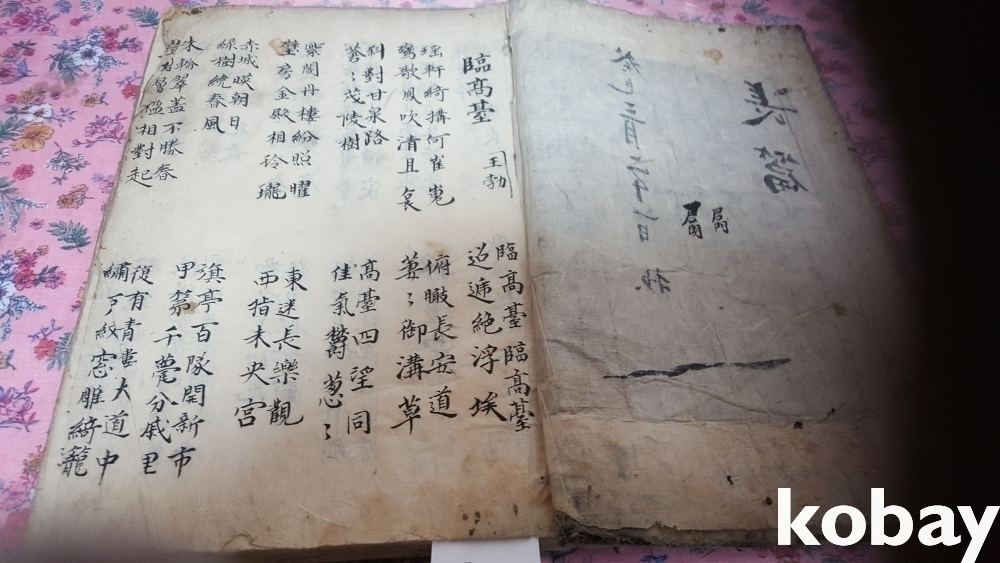 長篇
癸巳三月二十一日 抄
臨高臺 王勃
臨高臺臨高臺
迢遞絕浮埃
瑤軒綺搆何崔嵬
鸞歌鳳吹清且哀
俯瞰長安道
萋〻御溝草
斜對甘泉路
蒼〻茂陵樹
高臺四望同
佳氣鬱蔥〻
紫閣丹樓紛照曜
璧房金殿相玲瓏
東迷長樂觀
西指未央宮
赤城暎朝日
綠樹繞春風
旗亭百隊開新市
甲第千甍分戚里
朱輪翠盖不勝春
疊榭層楹相對起
復有青樓大道中
繡戶紋窓雕綺
kobay